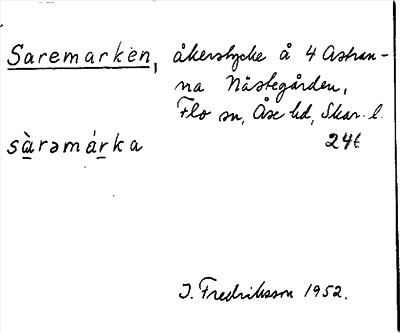 Saremarken, åkerstycke å 4 Astran-
na Nästegården,
Flo sn, Åse hd, Skar. l.
sàrəmárka 24
I. Fredriksson 1952.